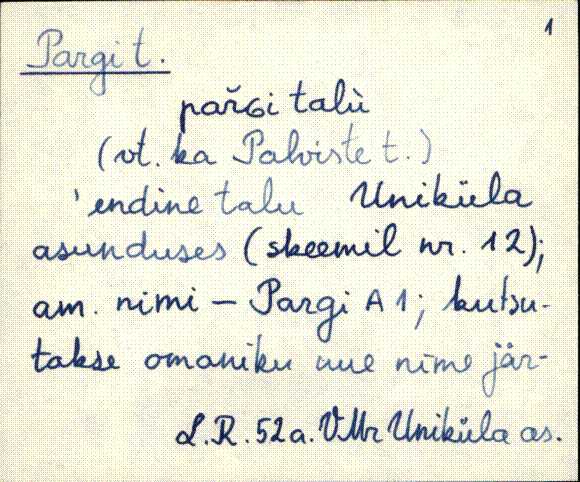 1
Pargi t.
pařGi talù
(vt. ka Palviste t.)
'endine talu Uniküla
asunduses (skeemil nr. 12);
am. nimi – Pargi A 1; kutsu-
takse omaniku uue nime jär-
L.R. 52 a. VMr Uniküla as.